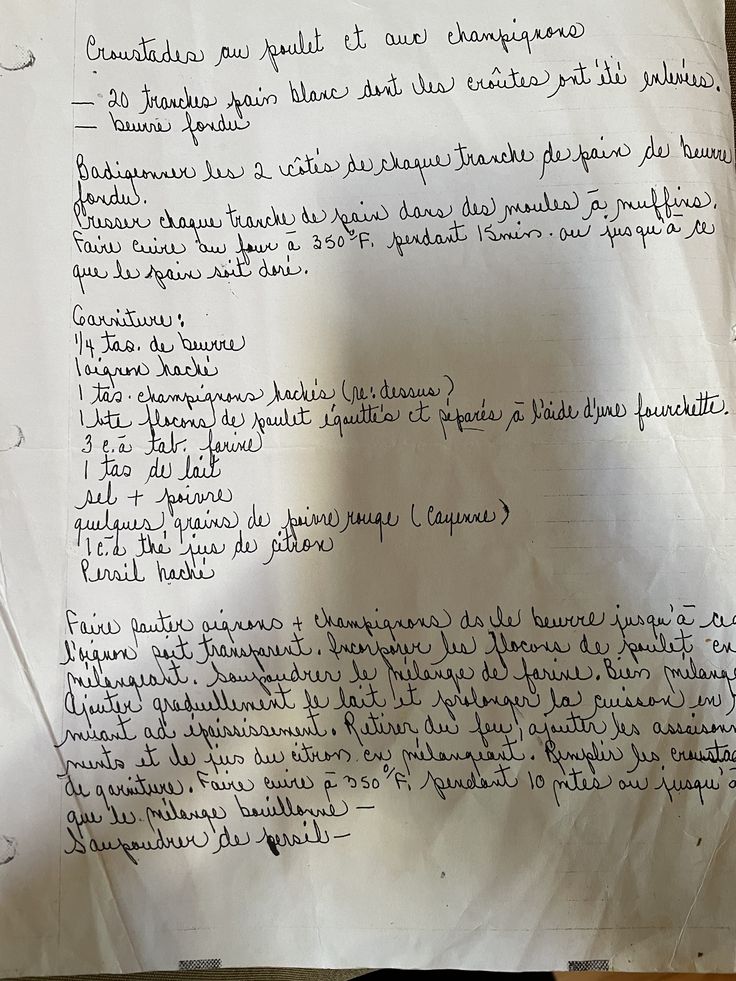 Croustades au poulet et aux champignons
— 20 tranches pain blanc dont les croûtes ont été enlevées.
— beurre fondu
Badigeonner les 2 côtés de chaque tranche de pain de beurre
fondu.
Presser chaque tranche de pain dans des moules à muffins.
Faire cuire au four à 350°F. pendant 15 mins. ou jusqu'à ce
que le pain soit doré.
Garniture:
1/4 tas. de beurre
1 oignon haché
1 tas. champignons hachés (re: dessus)
1 bte flocons de poulet égouttés et séparés à l'aide d'une fourchette.
3 c. à tab. farine
1 tas de lait
sel + poivre
quelques grains de poivre rouge (Cayenne)
1 c. à thé jus de citron
Persil haché
Faire sauter oignons + champignons ds le beurre jusqu'à ce
l'oignon soit transparent. Incorporer les flocons de poulet en
mélangeant. Saupoudrer le mélange de farine. Bien mélange
Ajouter graduellement le lait et prolonger la cuisson en r
muant ad épaississement. Retirer du feu, ajouter les assaisonn
ments et le jus du citron en mélangeant. Remplir les croustad
de garniture. Faire cuire à 350°F. pendant 10 mtes ou jusqu'à
que le mélange bouillonne —
Saupoudrer de persil —